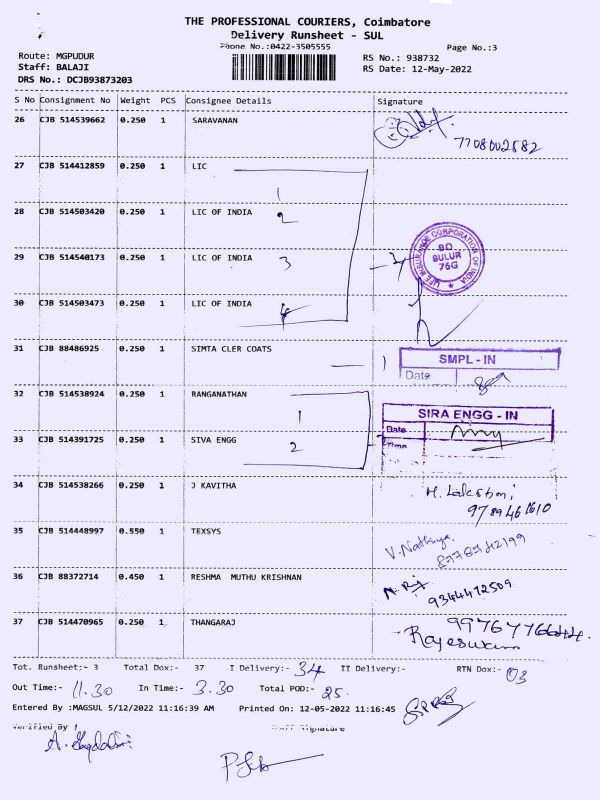 THE PROFESSIONAL COURIERS, Coimbatore
Delivery Runsheet - SUL
Phone No.:0422-3505555
Page No.:3
Route: MGPUDUR
Staff: BALAJI
DRS No.: DCJB93873203
RS No.: 938732
RS Date: 12-May-2022
S No Consignment No Weight PCS Consignee Details Signature
26 CJB 514539662 0.250 1 SARAVANAN
7708002582
27 CJB 514412859 0.250 1 LIC
1
28 CJB 514503420 0.250 1 LIC OF INDIA 2
LIFE INSURANCE CORPORATION OF INDIA
BO
SULUR
76G
29 CJB 514540173 0.250 1 LIC OF INDIA 3
30 CJB 514503473 0.250 1 LIC OF INDIA 4
31 CJB 88486925 0.250 1 SIMTA CLER COATS
1
SMPL - IN
Date
32 CJB 514538924 0.250 1 RANGANATHAN
1
SIRA ENGG - IN
Date
Time
33 CJB 514391725 0.250 1 SIVA ENGG 2
34 CJB 514538266 0.250 1 J KAVITHA
9789461610
35 CJB 514448997 0.550 1 TEXSYS
V. Nathiya
8778742199
36 CJB 88372714 0.450 1 RESHMA MUTHU KRISHNAN
9344412509
37 CJB 514470965 0.250 1 THANGARAJ
Rajeswari
Tot. Runsheet:- 3 Total Dox:- 37 I Delivery:- 34 II Delivery:- RTN Dox:- 03
Out Time:- 11.30 In Time:- 3.30 Total POD:- 25
Entered By :MAGSUL 5/12/2022 11:16:39 AM Printed On: 12-05-2022 11:16:45
Verified By Staff Signature